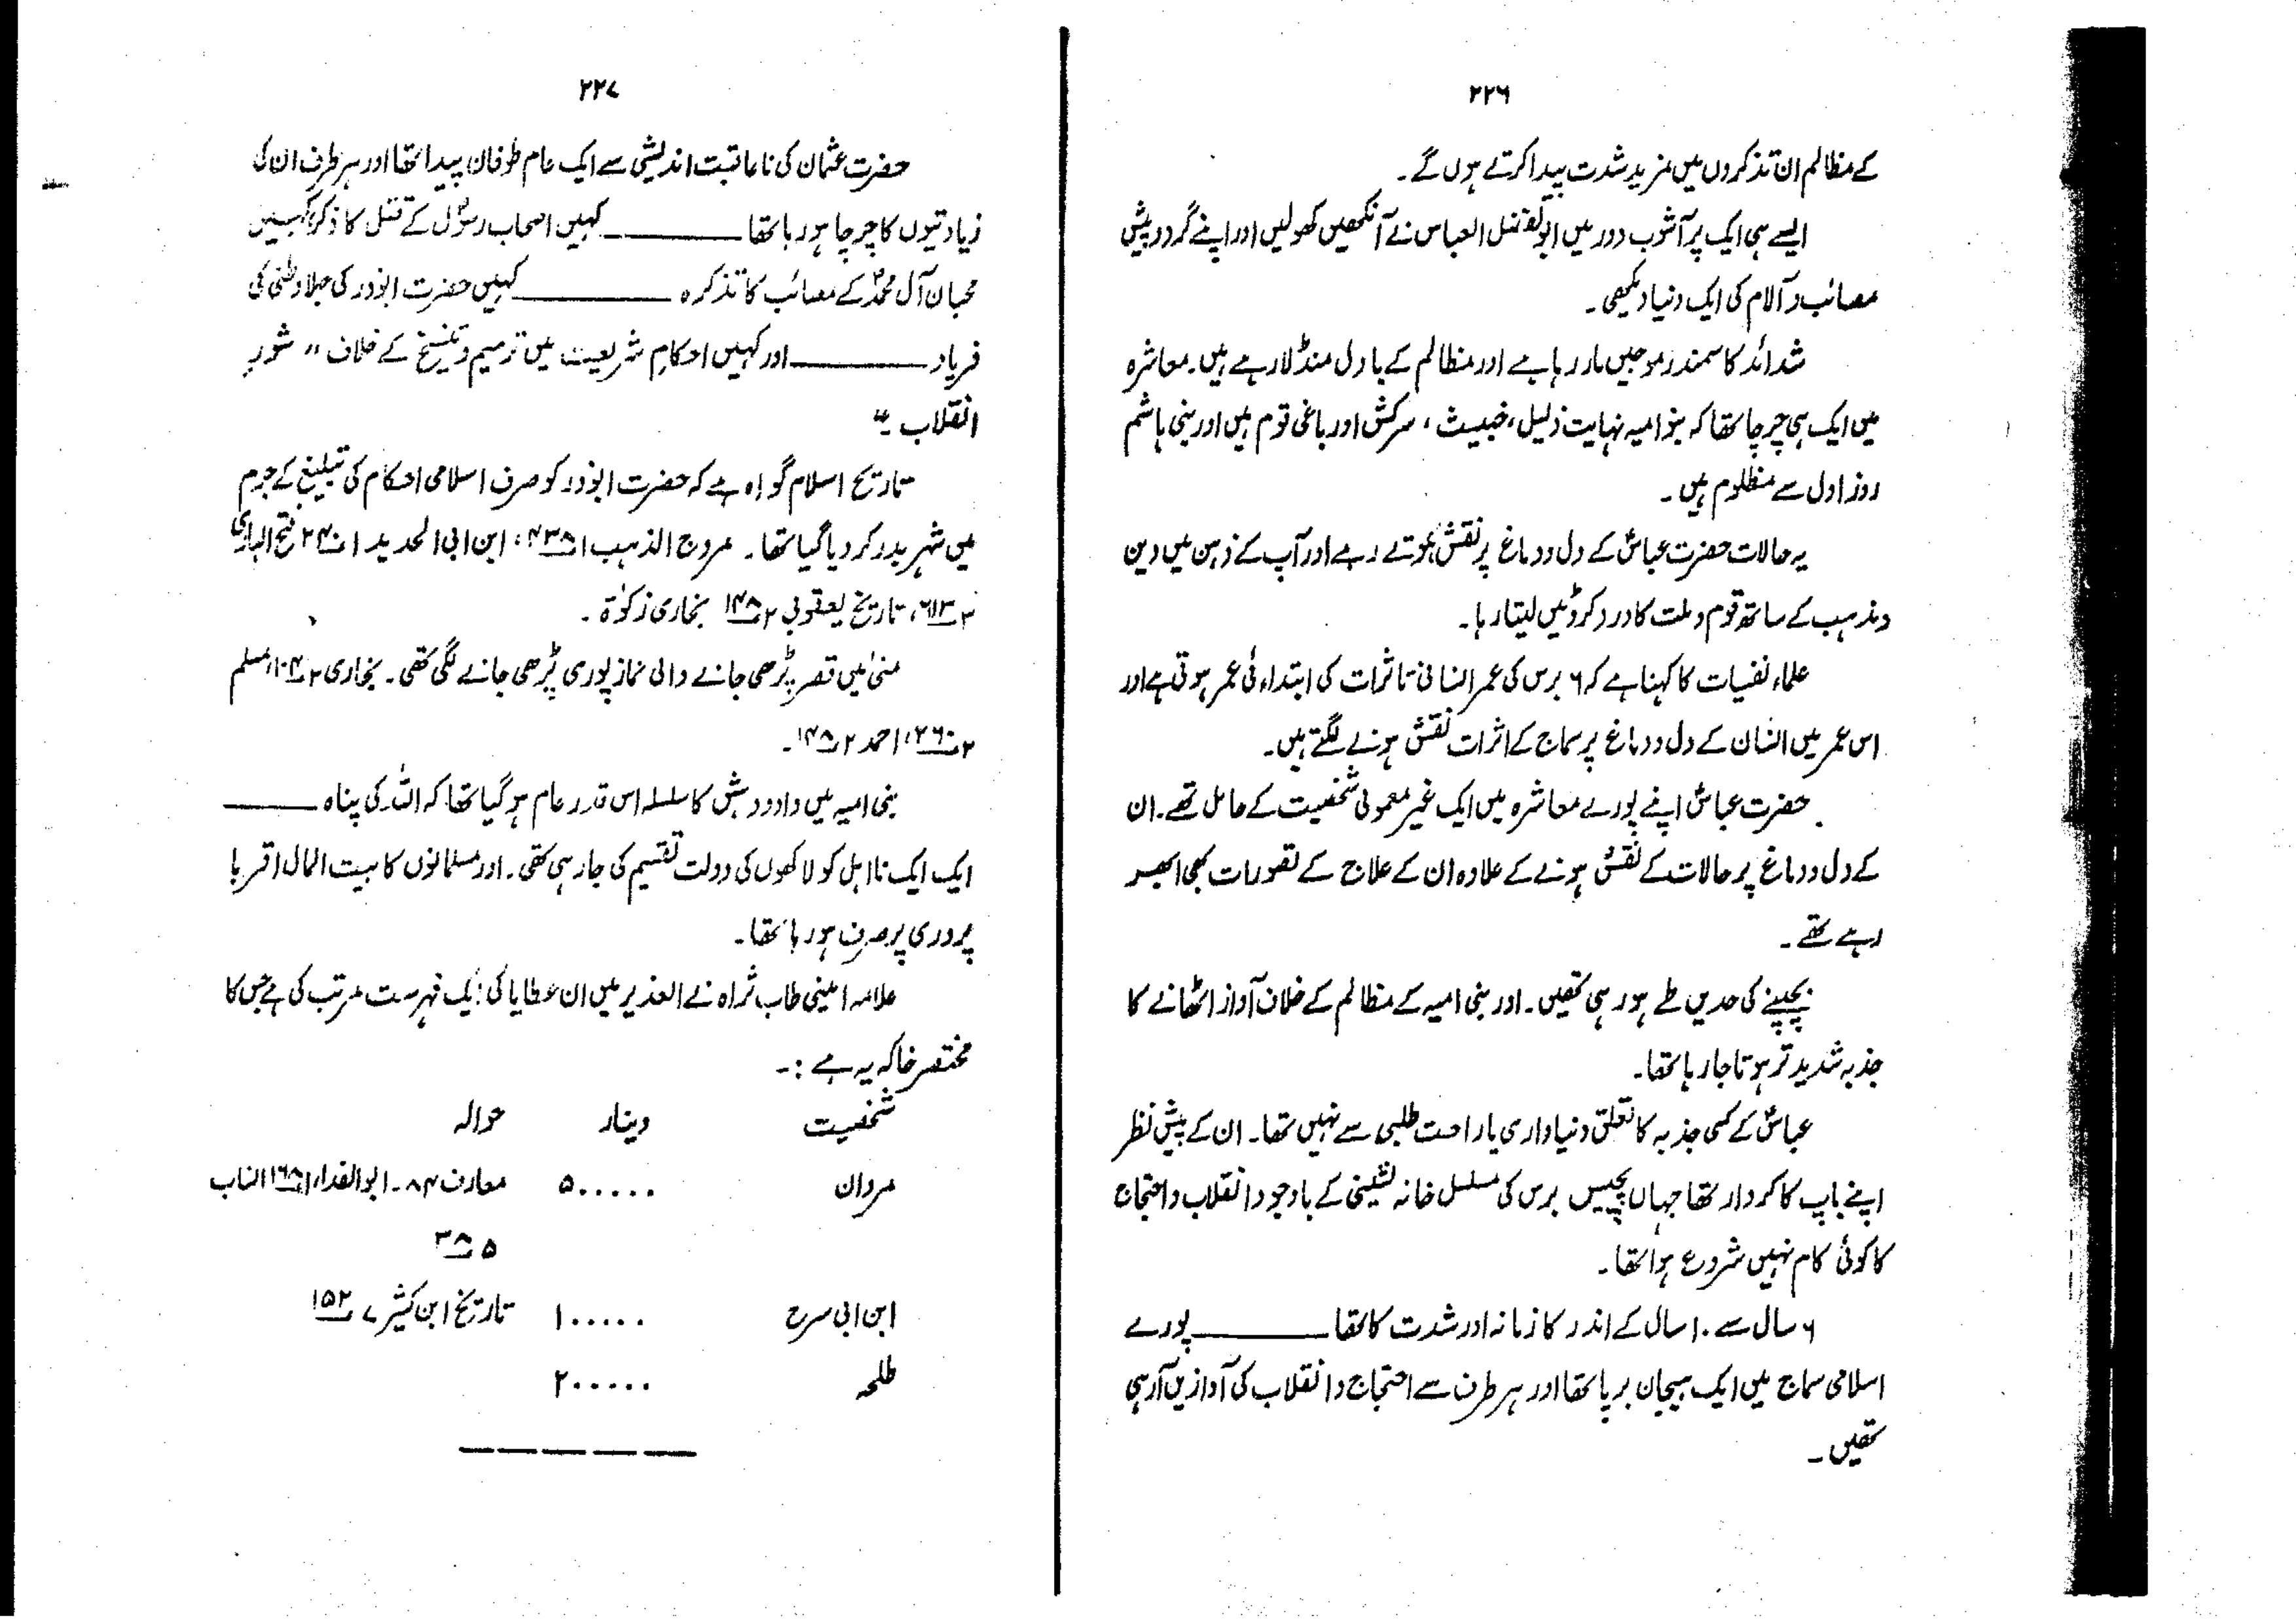 ۲۲۶
کے مظالم ان تذکروں میں مزید شدت پیدا کرتے ہوں گے۔
ایسے ہی ایک پر آشوب دور میں ابوالفضل العباس نے آنکھیں کھولیں اور اپنے گرد و پیش
مصائب و آلام کی ایک دنیا دیکھی۔
شدائد کا سمندر موجیں مار رہا ہے اور مظالم کے بادل منڈلا رہے ہیں۔ معاشرہ
میں ایک ہی چرچا تھا کہ بنو امیہ نہایت ذلیل، خبیث، سرکش اور باغی قوم ہیں اور بنی ہاشم
روز اول سے مظلوم ہیں۔
یہ حالات حضرت عباسؑ کے دل و دماغ پر نقش ہوتے رہے اور آپ کے ذہن میں دین
و مذہب کے ساتھ قوم و ملت کا درد کروٹیں لیتا رہا۔
علماء نفسیات کا کہنا ہے کہ ۶ برس کی عمر انسانی تاثرات کی ابتداءئی عمر ہوتی ہے اور
اس عمر میں انسان کے دل و دماغ پر سماج کے اثرات نقش ہونے لگتے ہیں۔
حضرت عباسؑ اپنے پورے معاشرہ میں ایک غیر معمولی شخصیت کے حامل تھے۔ ان
کے دل و دماغ پر حالات کے نقش ہونے کے علاوہ ان کے علاج کے تصورات بھی ابھر
رہے تھے۔
بچپنے کی حدیں طے ہو رہی تھیں۔ اور بنی امیہ کے مظالم کے خلاف آواز اٹھانے کا
جذبہ شدید تر ہوتا جا رہا تھا۔
عباسؑ کے کسی جذبہ کا تعلق دنیا داری یا راحت طلبی سے نہیں تھا۔ ان کے پیش نظر
اپنے باپ کا کردار تھا جہاں پچیس برس کی مسلسل خانہ نشینی کے باوجود انقلاب و احتجاج
کا کوئی کام نہیں شروع ہوا تھا۔
۶ سال سے ۱۰ سال کے اندر کا زمانہ اور شدت کا تھا ــــــــــ پورے
اسلامی سماج میں ایک ہیجان برپا تھا اور ہر طرف سے احتجاج و انقلاب کی آوازیں آ رہی
تھیں۔
۲۲۷
حضرت عثمان کی ناعاقبت اندیشی سے ایک عام طوفان پیدا تھا اور ہر طرف ان کی
زیادتیوں کا چرچا ہو رہا تھا ــــــــــ کہیں اصحاب رسولؐ کے قتل کا ذکر کہیں
محبان آل محمدؐ کے مصائب کا تذکرہ ــــــــــ کہیں حضرت ابوذر کی جلا وطنی کی
فریاد ــــــــــ اور کہیں احکام شریعت میں ترمیم و تنسیخ کے خلاف "شور
انقلاب"۔
تاریخ اسلام گواہ ہے کہ حضرت ابوذر کو صرف اسلامی احکام کی تبلیغ کے جرم
میں شہر بدر کر دیا گیا تھا۔ مروج الذہب ۱ ۴۳۸، ابن ابی الحدید ۱ ۲۴۰ فتح الباری
۲ ۶۱۳، تاریخ یعقوبی ۲ ۱۴۸ بخاری زکوٰۃ۔
منیٰ میں قصر پڑھی جانے والی نماز پوری پڑھی جانے لگی تھی۔ بخاری ۲ ۱۰۴، مسلم
۲ ۲۶۰، احمد ۲ ۱۴۸۔
بنی امیہ میں داد و دہش کا سلسلہ اس قدر عام ہو گیا تھا کہ اللہ کی پناہ ــــــــــ
ایک ایک نا اہل کو لاکھوں کی دولت تقسیم کی جا رہی تھی۔ اور مسلمانوں کا بیت المال اقربا
پروری پر صرف ہو رہا تھا۔
علامہ امینی طاب ثراہ نے الغدیر میں ان عطایا کی ایک فہرست مرتب کی ہے جس کا
مختصر خاکہ یہ ہے :-
شخصیت دینار حوالہ
مروان ۵۰۰۰۰۰ معارف ۸۴۔ ابوالفداء ۱ ۱۶۸ انساب
۵ ۳۸
ابن ابی سرح ۱۰۰۰۰۰ تاریخ ابن کثیر ۷ ۱۵۲
طلحہ ۲۰۰۰۰۰